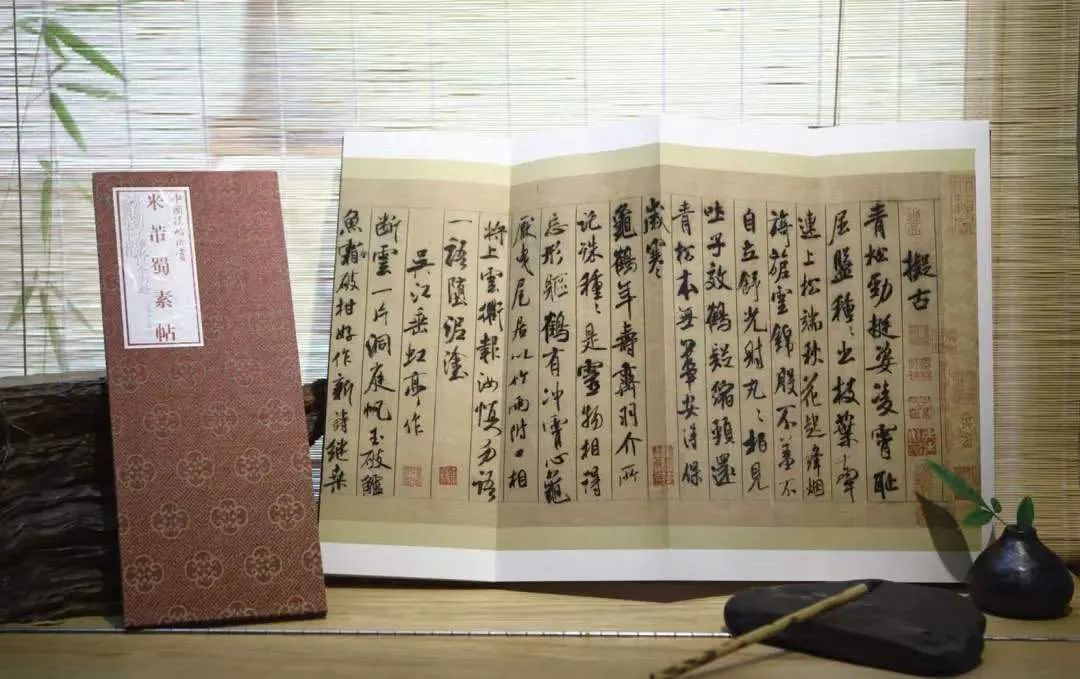 米芾蜀素帖
擬古
青松勁挺姿凌霄恥
屈盤種〻出枝葉牽
連上松端秋花起絳烟
旖旎雲錦殷不羞不
自立舒光射丸〻柏見
吐子效鶴疑縮頸還
青松本無華安得保
歲寒
龜鶴年壽齊羽介所
託殊種〻是靈物相得
忘形軀鶴有冲霄心龜
厭曳尾居以竹兩附口相
將上雲衢報汝慎勿語
一語墮泥塗
吳江垂虹亭作
断雲一片洞庭帆玉破鱸
魚霜破柑好作新詩继桑